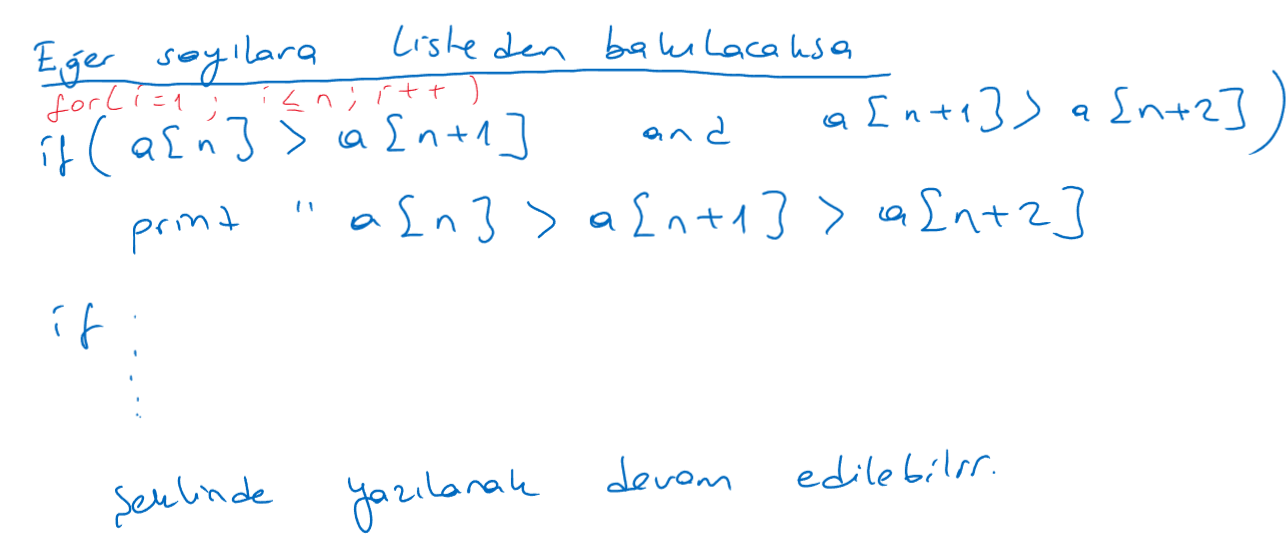 Eğer sayılara listeden bakılacaksa
for(i=1; i≤n; i++)
if(a[n] > a[n+1] and a[n+1] > a[n+2])
print " a[n] > a[n+1] > a[n+2]
if
şeklinde yazılarak devam edilebilir.